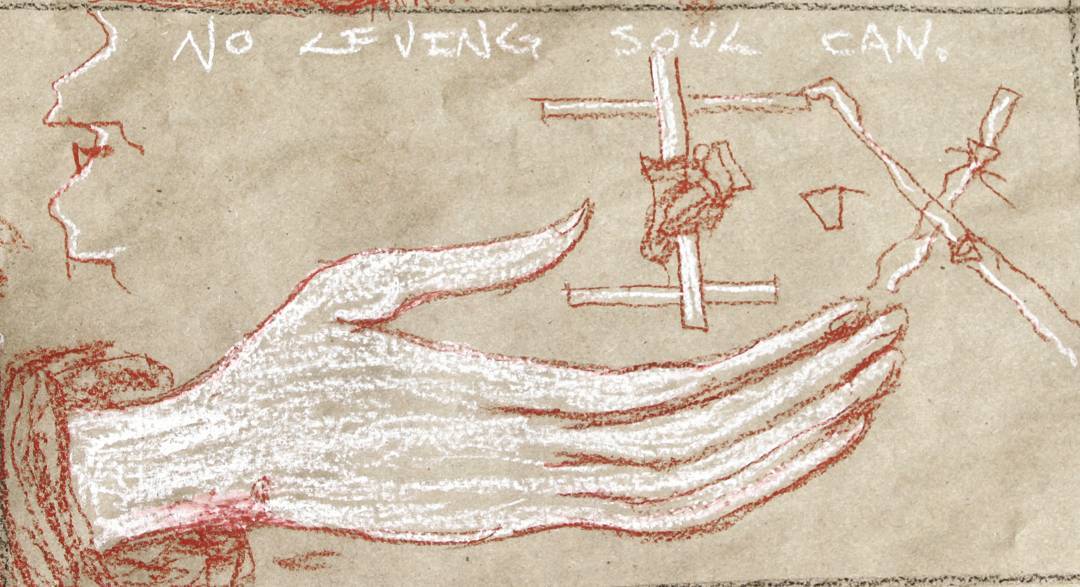 NO LIVING SOUL CAN.